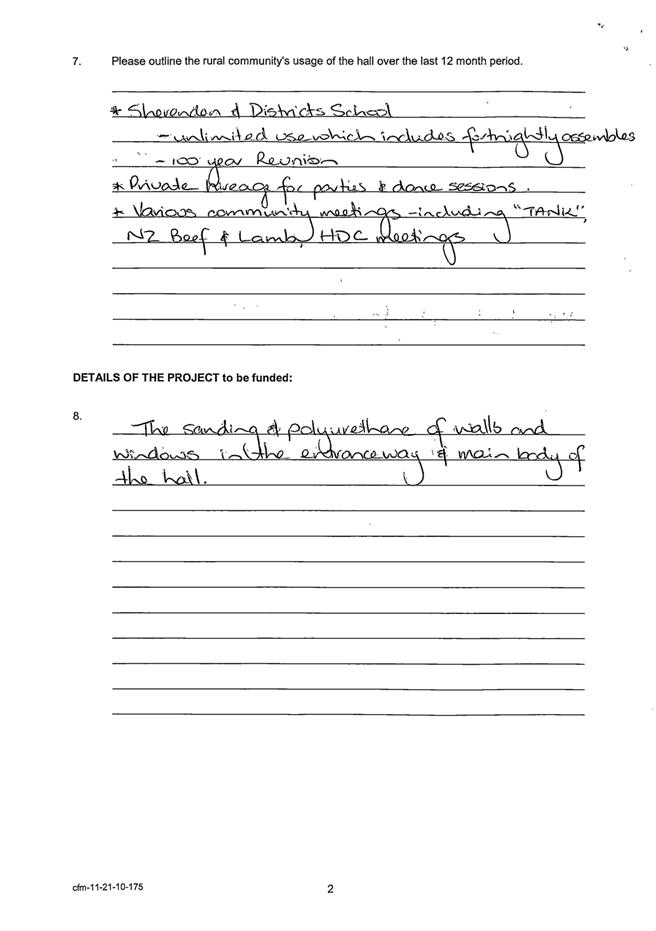 7. Please outline the rural community's usage of the hall over the last 12 month period.
* Sherenden & Districts School
- unlimited use which includes fortnightly assembles
" - 100 year Reunion
* Private hireage for parties & dance sessions.
* Various community meetings - including "TANK",
NZ Beef & Lamb, HDC meetings
DETAILS OF THE PROJECT to be funded:
8.
The sanding & polyurethane of walls and
windows in the entranceway & main body of
the hall.
cfm-11-21-10-175
2